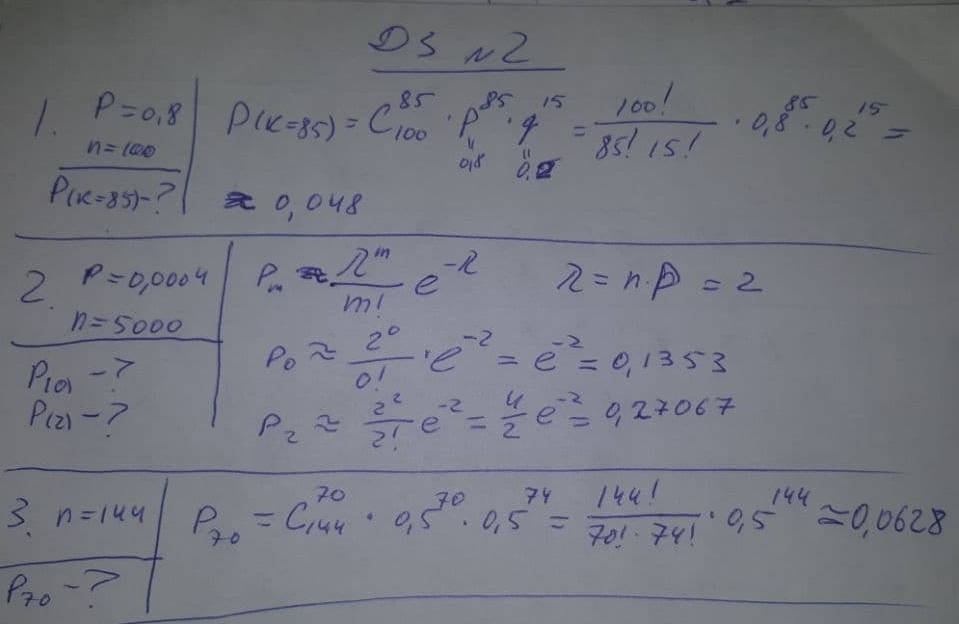 ДЗ №2
1. P=0,8
n=100
P(к=85)-?
P(к=85) = C₁₀₀⁸⁵ · p⁸⁵ · q¹⁵ = 100! / 85! 15! · 0,8⁸⁵ · 0,2¹⁵ =
" 0,8 " 0,2
≈ 0,048
2. P=0,0004
n=5000
P(0) -?
P(2) -?
Pₘ ≈ λᵐ / m! e⁻λ λ = n·p = 2
P₀ ≈ 2⁰ / 0! · e⁻² = e⁻² = 0,1353
P₂ ≈ 2² / 2! e⁻² = 4/2 e⁻² = 0,27067
3. n=144
P₇₀ -?
P₇₀ = C₁₄₄⁷⁰ · 0,5⁷⁰ · 0,5⁷⁴ = 144! / 70! · 74! · 0,5¹⁴⁴ ≈ 0,0628